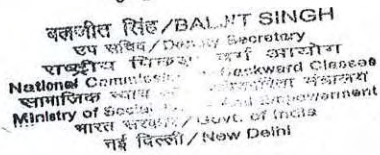 बलजीत सिंह/BALJIT SINGH
उप सचिव/Deputy Secretary
राष्ट्रीय पिछड़ा वर्ग आयोग
National Commission Backward Classes
सामाजिक न्याय मंत्रालय
Ministry of Social And Empowerment
भारत सरकार/Govt. of India
नई दिल्ली/New Delhi